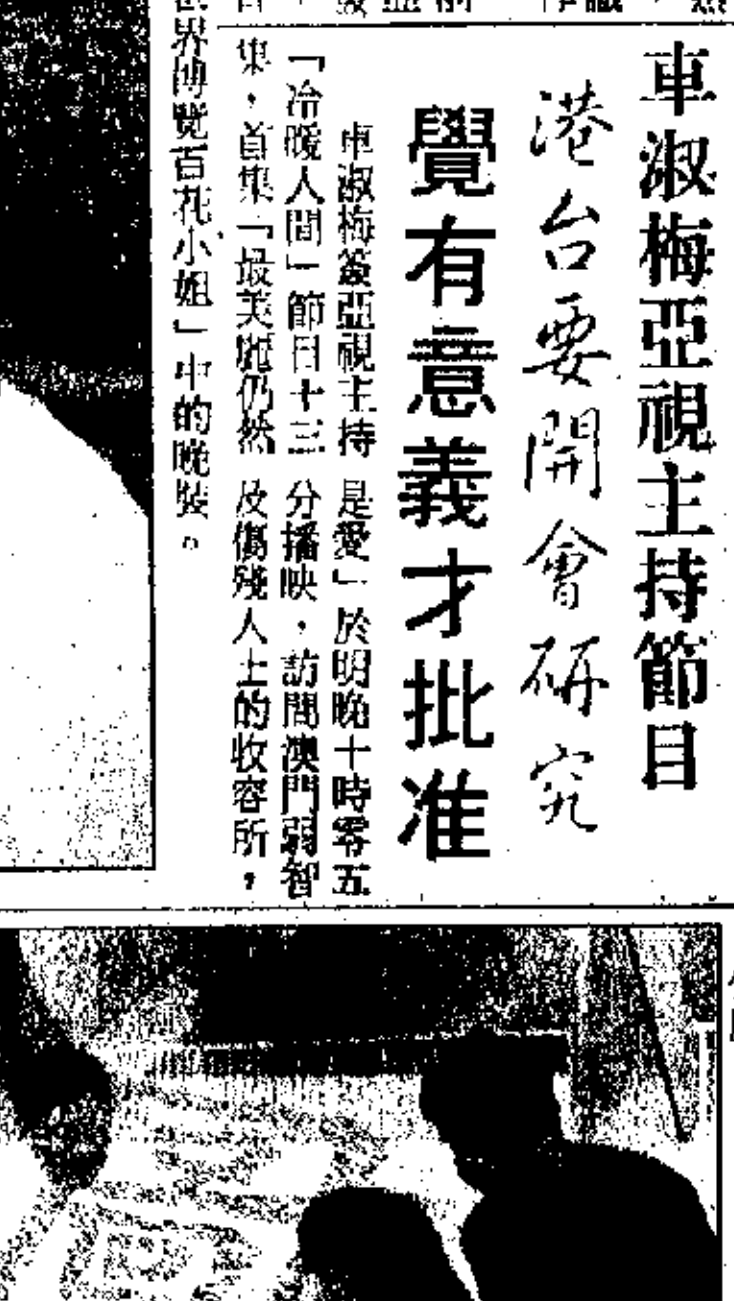 車淑梅亞視主持節目
港台要開會研究
覺有意義才批准
車淑梅簽亞視主持
「冷暖人間」節目十三
集，首集「最美麗仍然
是愛」於明晚十時零五
分播映，訪問澳門弱智
及傷殘人士的收容所，
世界博覽百花小姐」中的晚裝。